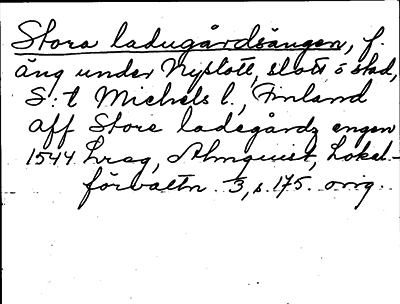 Stora ladugårdsängen, f.
äng under Nyslott, slott o stad,
S:t Michels l., Finland
aff Store ladegårdz engen
1544 hrag, Almquist, Lokal-
förvaltn. 3, s. 175. orig.